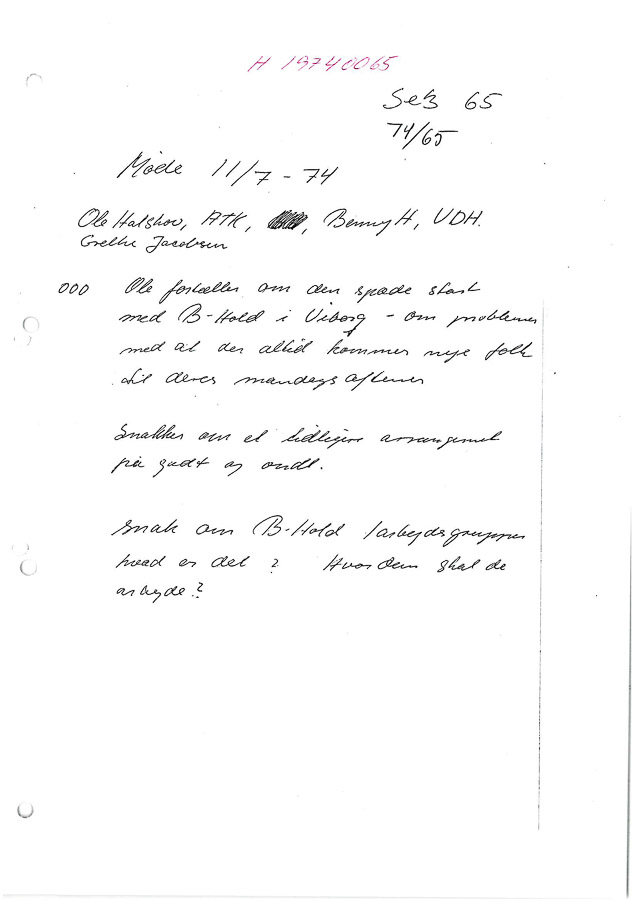 H 19740065
65
74/65
Møde 11/7 - 74
Ole Halskov, ATK, Benny H, VDH.
Grethe Jacobsen
000 Ole fortæller om den spæde start
med B-Hold i Viborg - om problemer
med at der altid kommer nye folk
til deres mandags aftener
Snakker om et tidligere arrangement
på godt og ondt.
Snak om B-Hold / arbejdsgrupper
hvad er det ? Hvordan skal de
arbejde?